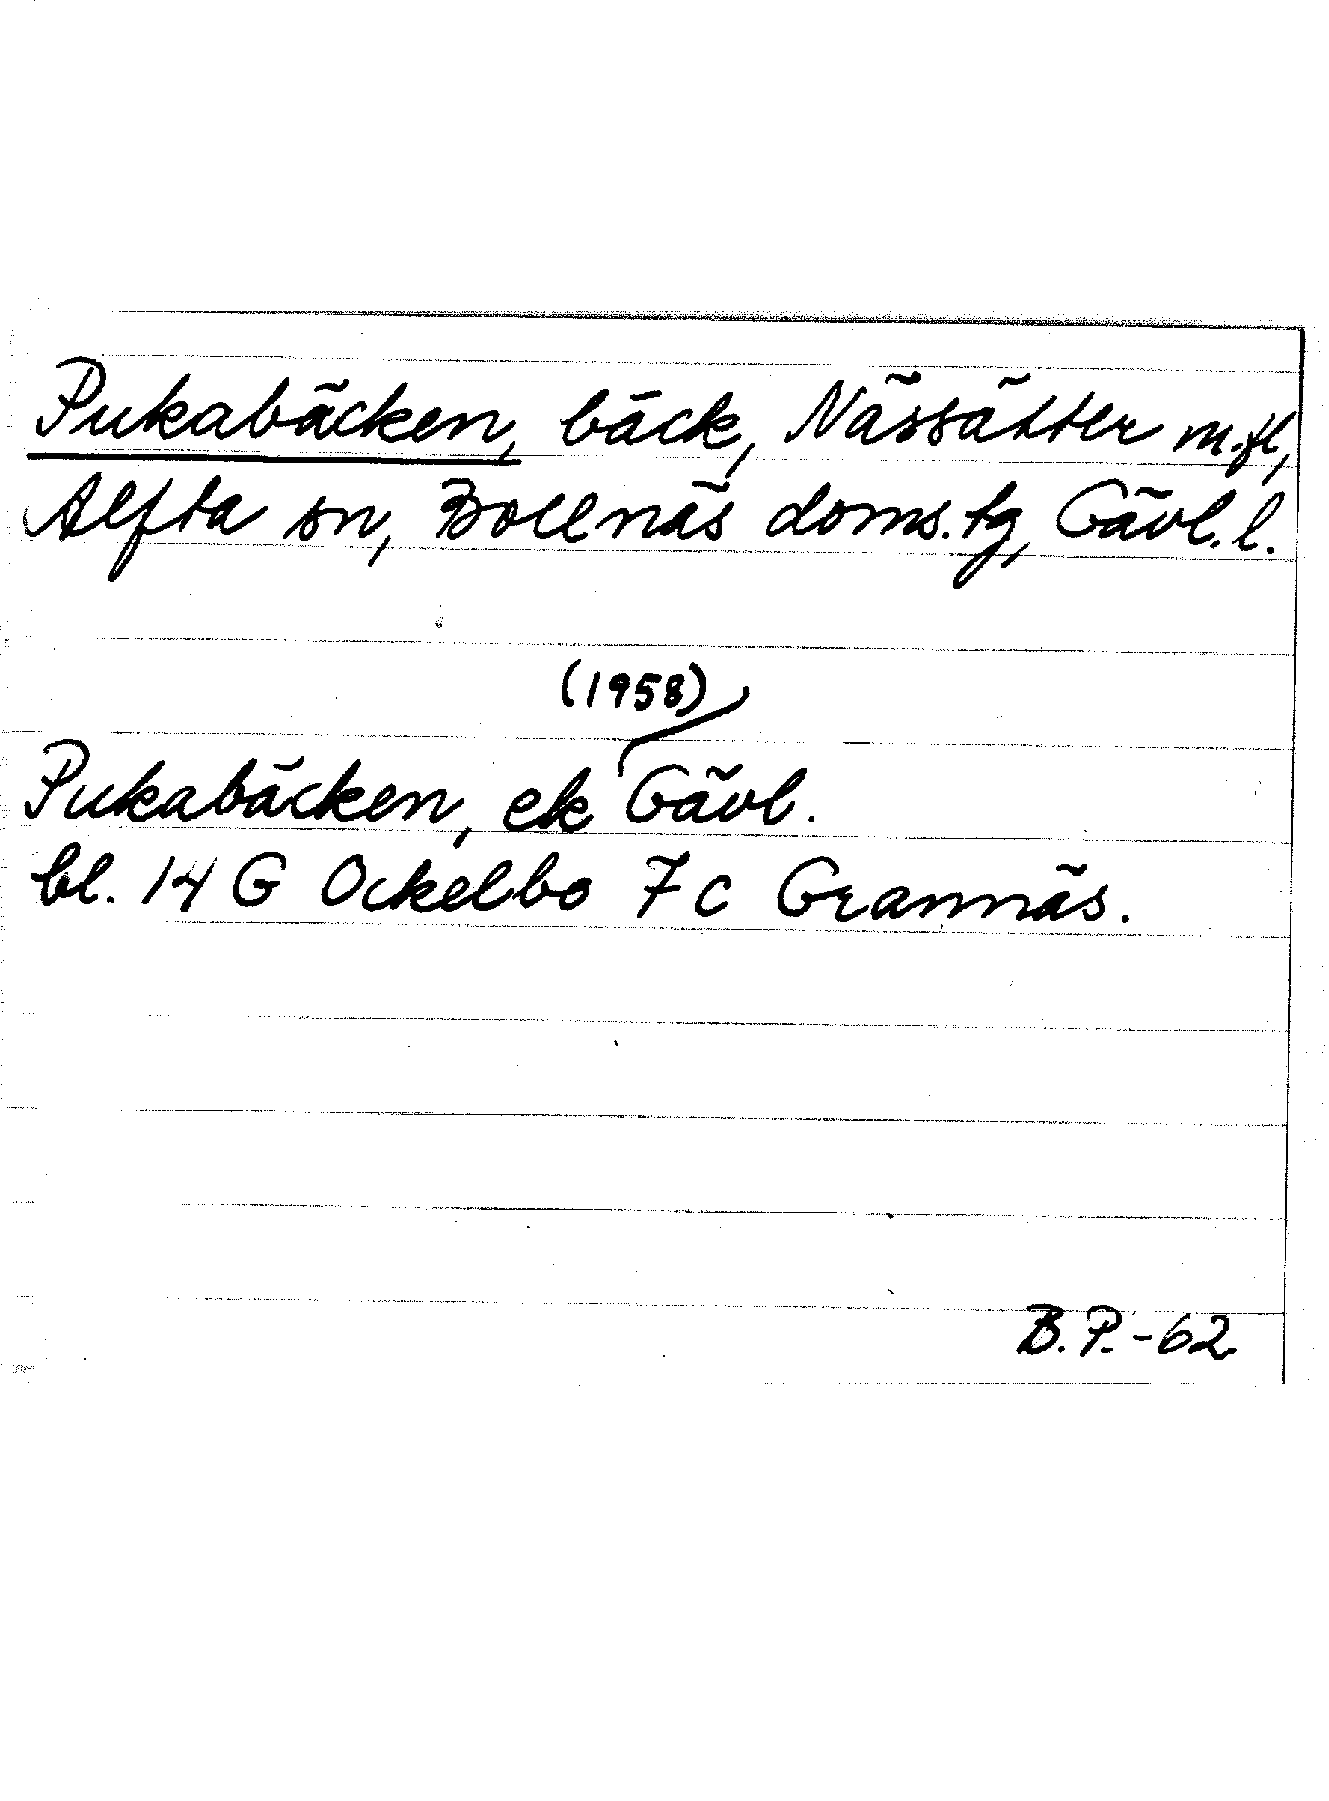 Pukabäcken, bäck, Nässätter m.fl,
Alfta sn, Bollnäs doms.tg, Gävl.l.
(1958)
Pukabäcken, ek Gävl.
bl. 14 G Ockelbo 7 c Grannäs.
B.P.-62